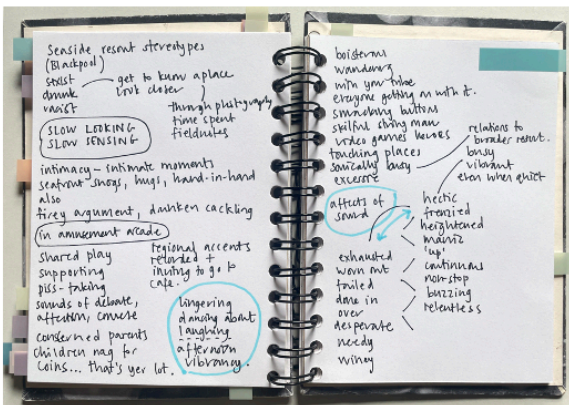 Seaside resort stereotypes
(Blackpool)
sexist
drunk
racist
get to know a place
look closer
through photography
time spent
fieldnotes
SLOW LOOKING
SLOW SENSING
intimacy - intimate moments
seafront snogs, hugs, hand-in-hand
also
firey argument, drunken cackling
in amusement arcade
shared play
supporting
piss-taking
sounds of debate,
affection, concern
concerned parents
children nag for
coins... that's yer lot.
regional accents
retorted +
inviting to go to
cafe.
lingering
dancing about
laughing
afternoon
vibrancy.
boisterous
wandering
with your tribe
everyone getting on with it.
smacking buttons
skilful string man
video games heroes
touching places
sonically busy
excessive
relations to
broader resort.
busy
vibrant
even when quiet
affects of
sound
hectic
frenzied
heightened
manic
'up'
continuous
non-stop
buzzing
relentless
exhausted
worn out
failed
done in
over
desperate
needy
winey